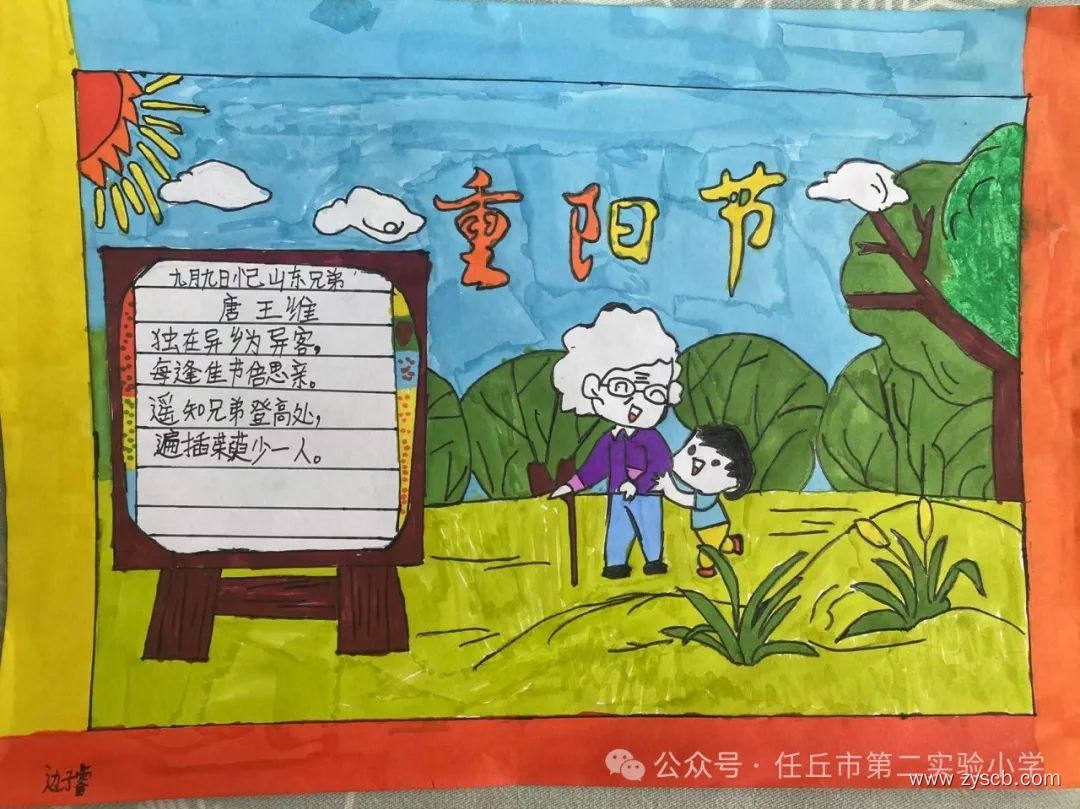 重阳节
九月九日忆山东兄弟
唐 王维
独在异乡为异客，
每逢佳节倍思亲。
遥知兄弟登高处，
遍插茱萸少一人。
边子睿
公众号·任丘市第二实验小学
www.zyscb.com